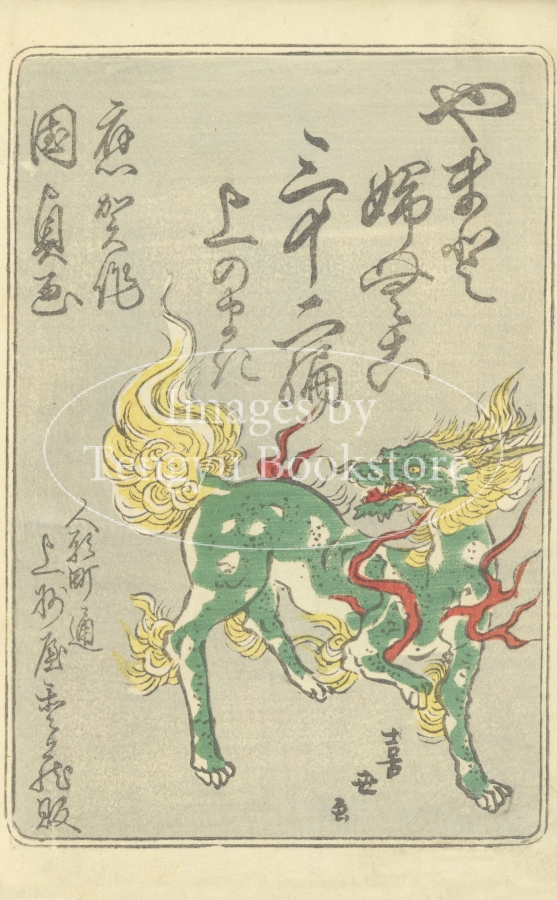 やまと
婦みこ
三十二編
上のまき
應賀作
国貞画
人形町通
上州屋重蔵販
喜世画
Images by
Tengyu Bookstore